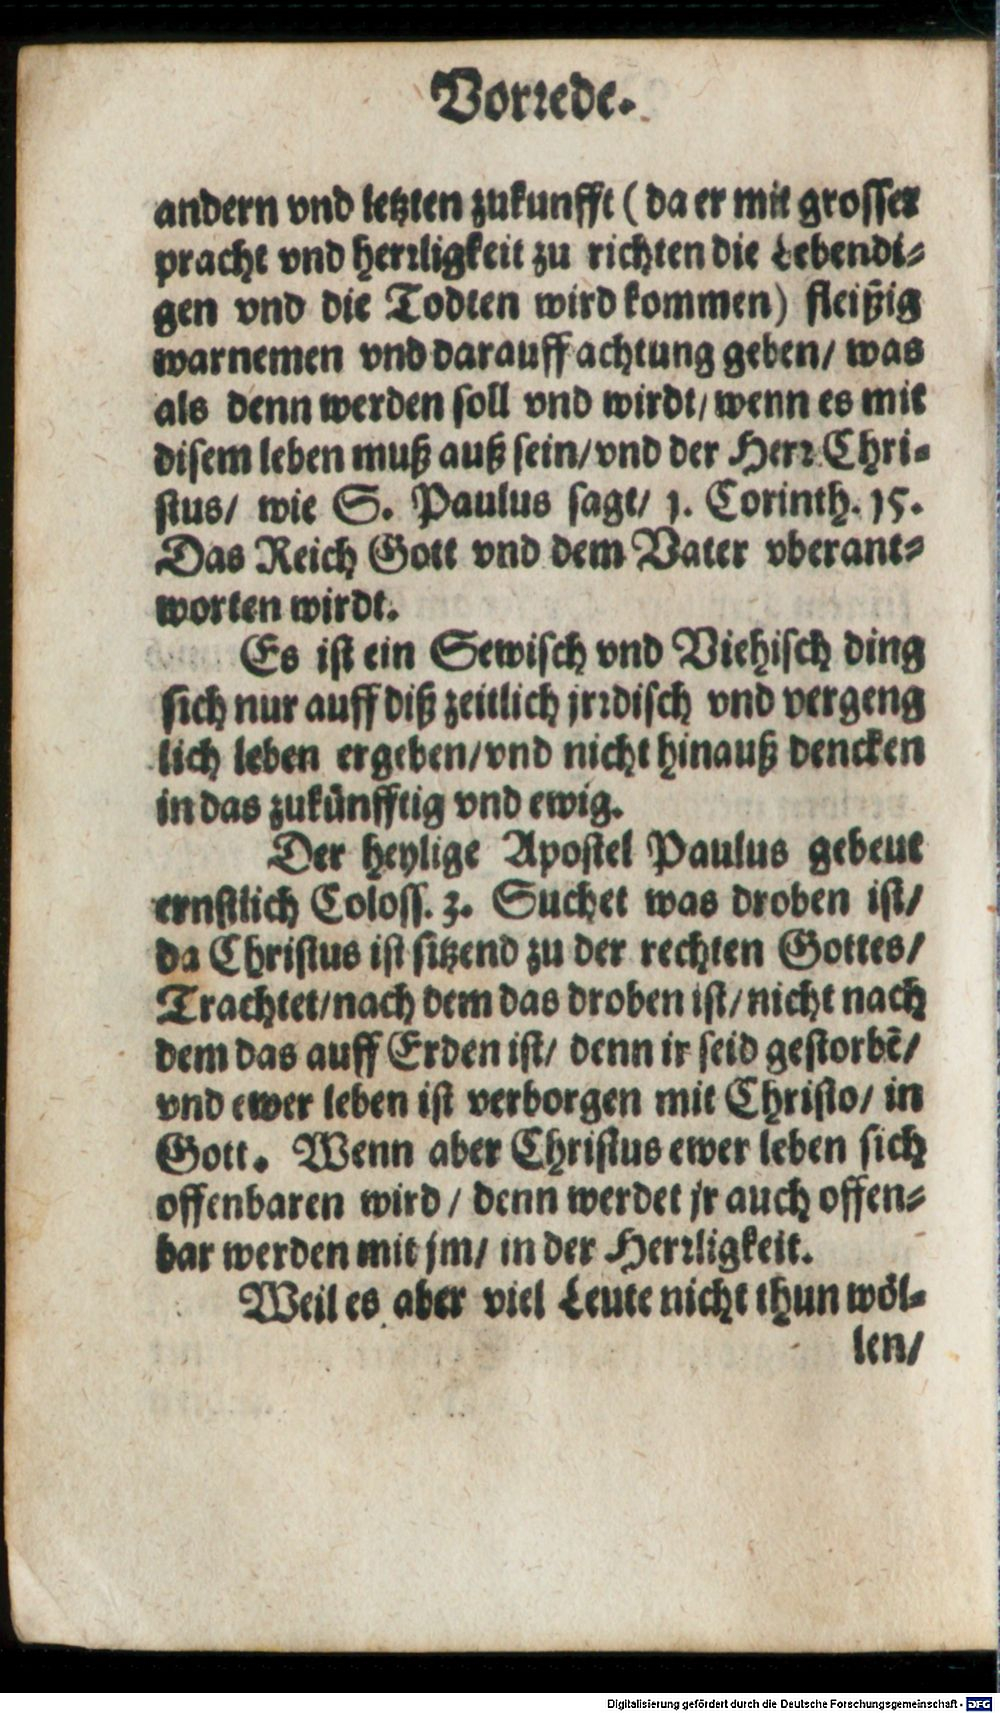 Vorrede.
andern vnd letzten zukunfft (da er mit grosser
pracht vnd herrligkeit zu richten die Lebendi-
gen vnd die Todten wird kommen) fleißig
warnemen vnd darauff achtung geben/ was
als denn werden soll vnd wirdt/ wenn es mit
disem leben muß auß sein/ vnd der Herr Chri-
stus/ wie S. Paulus sagt/ 1. Corinth. 15.
Das Reich Gott vnd dem Vater vberant-
worten wirdt.
Es ist ein Sewisch vnd Viehisch ding
sich nur auff diß zeitlich jrrdisch vnd vergeng
lich leben ergeben/ vnd nicht hinauß dencken
in das zukünfftig vnd ewig.
Der heylige Apostel Paulus gebeut
ernstlich Coloss. 3. Suchet was droben ist/
da Christus ist sitzend zu der rechten Gottes/
Trachtet/ nach dem das droben ist/ nicht nach
dem das auff Erden ist/ denn ir seid gestorbē/
vnd ewer leben ist verborgen mit Christo/ in
Gott. Wenn aber Christus ewer leben sich
offenbaren wird/ denn werdet jr auch offen-
bar werden mit jm/ in der Herrligkeit.
Weil es aber viel Leute nicht thun wöl-
len/
Digitalisierung gefördert durch die Deutsche Forschungsgemeinschaft - DFG